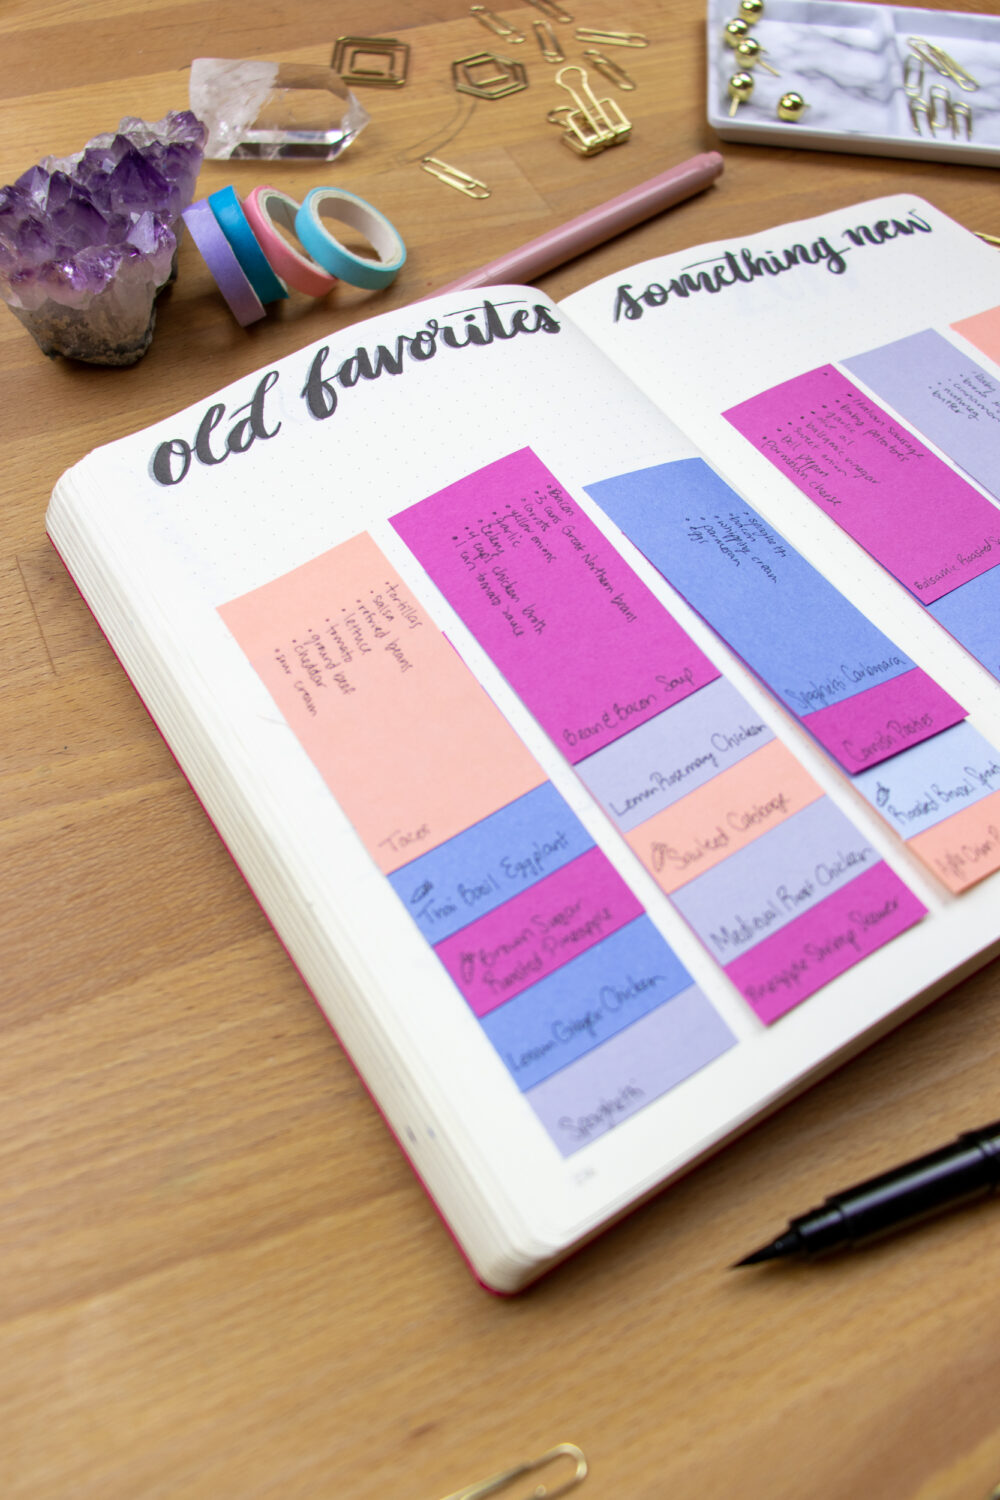 old favorites
• tortillas
• salsa
• refried beans
• lettuce
• tomato
• ground beef
• cheddar
• sour cream
Tacos
Thai Basil Eggplant
Brown Sugar
Roasted Pineapple
Lemon Ginger Chicken
Spaghetti
• Bacon
• 3 cans Great Northern beans
• carrots
• yellow onions
• garlic
• celery
• 4 cups chicken broth
• 1 can tomato sauce
Bean & Bacon Soup
Lemon Rosemary Chicken
Sauteed Cabbage
Medieval Roast Chicken
Pineapple Shrimp Skewer
• spaghetti
• bacon
• whipping cream
• parmesan
• eggs
Spaghetti Carbonara
Cornish Pasties
Roasted
something new
• Italian sausage
• baby potatoes
• garlic
• olive oil
• balsamic vinegar
• sweet onion
• bell pepper
• parmesan cheese
Balsamic Roasted
• baby
• cinnamon
• nutmeg
butter